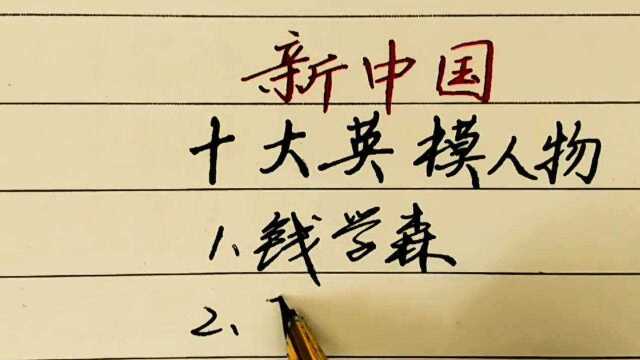 新中国
十大英模人物
1、钱学森
2、